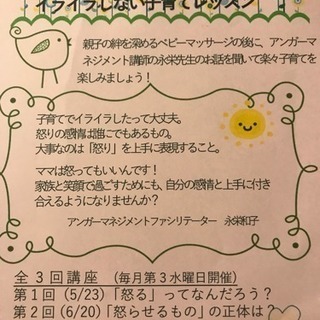 イライラしない子育てレッスン
親子の絆を深めるベビーマッサージの後に、アンガーマ
ネジメント講師の永栄先生のお話を聞いて楽々子育てを
楽しみましょう！
子育てでイライラしたって大丈夫。
怒りの感情は誰にでもあるもの。
大事なのは「怒り」を上手に表現すること。
ママは怒ってもいいんです！
家族と笑顔で過ごすためにも、自分の感情と上手に付き
合えるようになりませんか？
アンガーマネジメントファシリテーター　永栄和子
全３回講座　（毎月第３水曜日開催）
第１回（5/23）「怒る」ってなんだろう？
第２回（6/20）「怒らせるもの」の正体は？